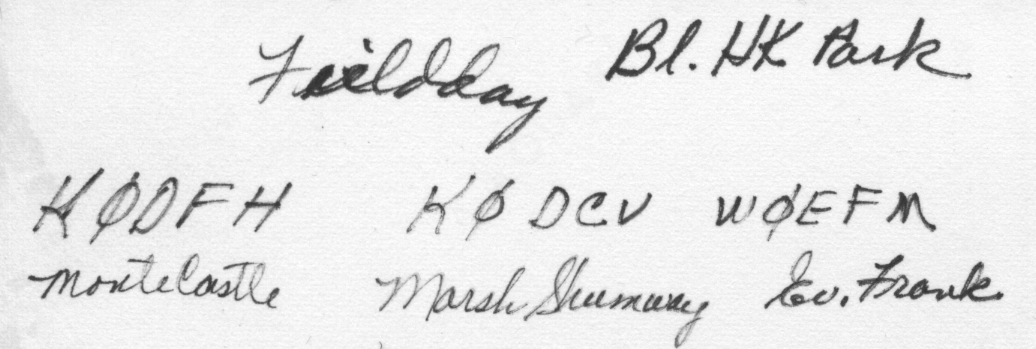 Fieldday Bl. HK Park
KØDFH KØDCV WØEFM
Monte Castle Marsh Shumway Ev. Frank